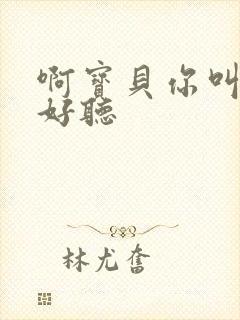 啊寶貝你叫
好聽
林尤奮